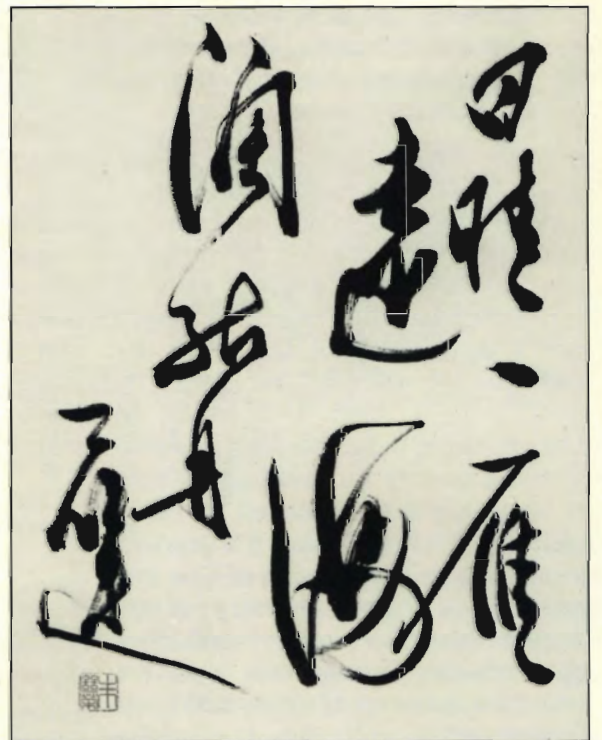 日晴一雁
遠海
濶孤舟
遲